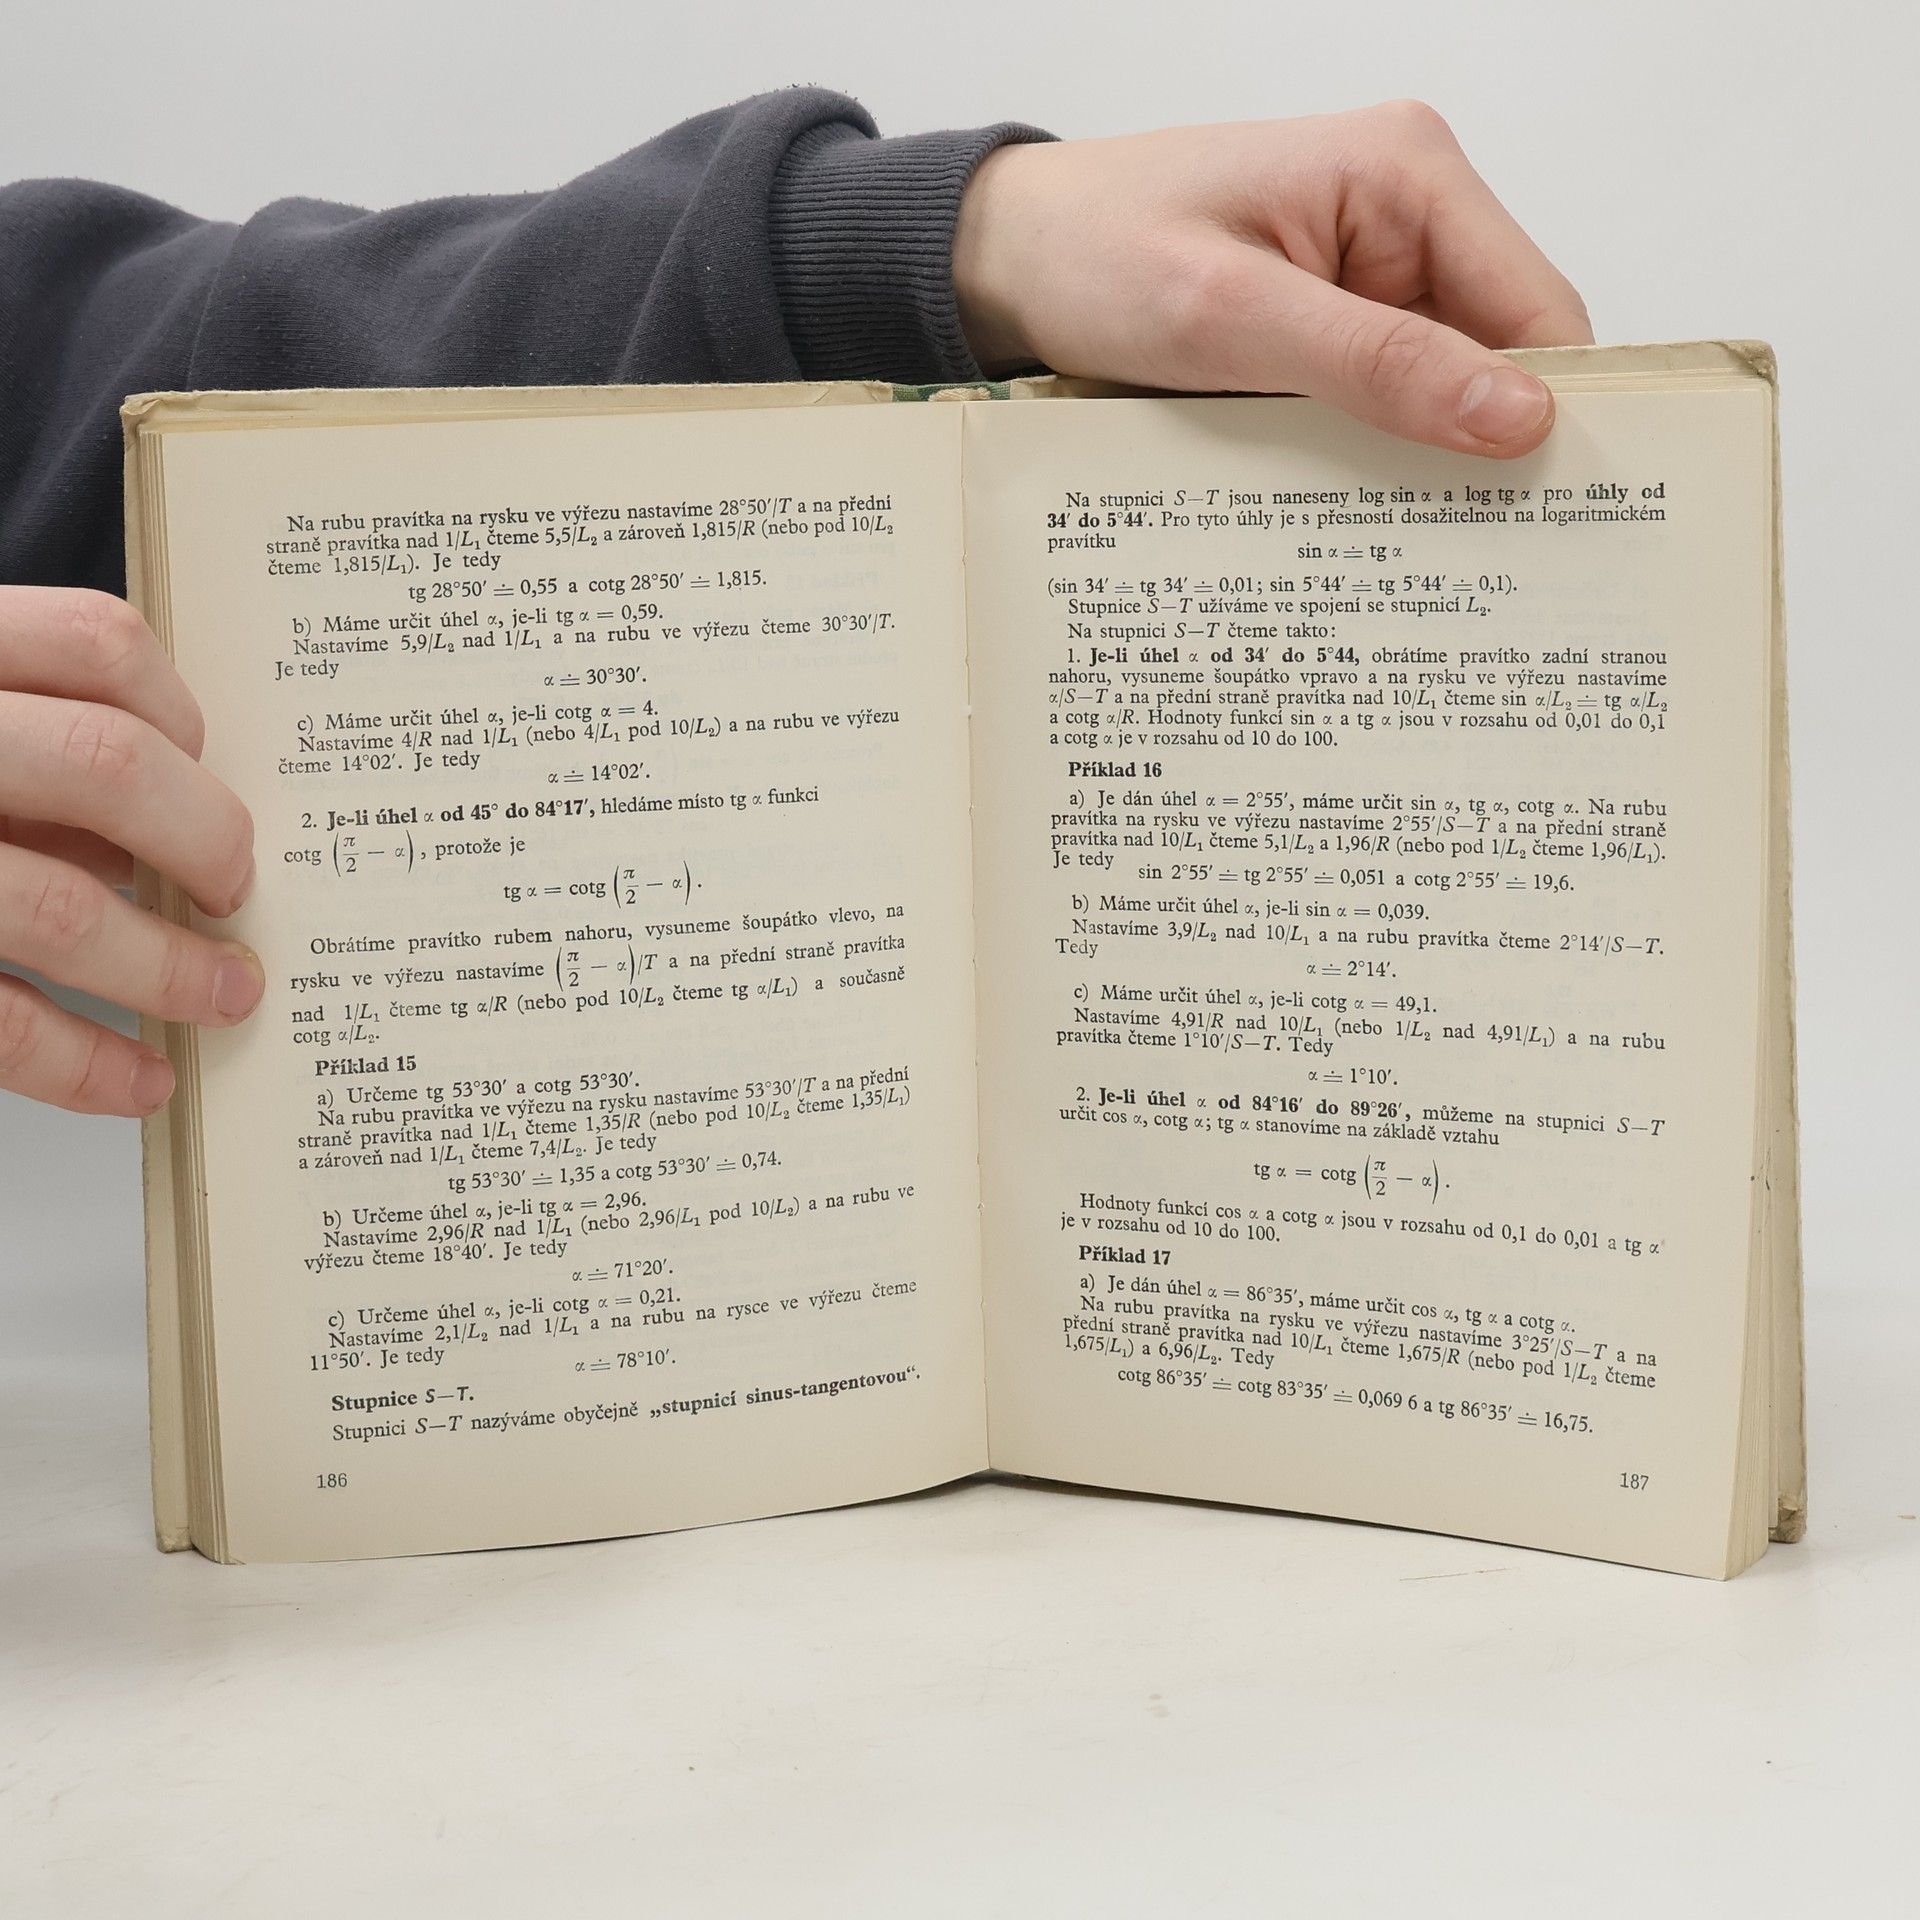 Na rubu pravítka na rysku ve výřezu nastavíme 28°50′/T a na přední
straně pravítka nad 1/L₁ čteme 5,5/L₂ a zároveň 1,815/R (nebo pod 10/L₂
čteme 1,815/L₁). Je tedy
tg 28°50′ ≐ 0,55 a cotg 28°50′ ≐ 1,815.
b) Máme určit úhel α, je-li tg α = 0,59.
Nastavíme 5,9/L₂ nad 1/L₁ a na rubu ve výřezu čteme 30°30′/T.
Je tedy
α ≐ 30°30′.
c) Máme určit úhel α, je-li cotg α = 4.
Nastavíme 4/R nad 1/L₁ (nebo 4/L₁ pod 10/L₂) a na rubu ve výřezu
čteme 14°02′. Je tedy
α ≐ 14°02′.
2. Je-li úhel α od 45° do 84°17′, hledáme místo tg α funkci
cotg (π/2 − α), protože je
tg α = cotg (π/2 − α).
Obrátíme pravítko rubem nahoru, vysuneme šoupátko vlevo, na
rysku ve výřezu nastavíme (π/2 − α)/T a na přední straně pravítka
nad 1/L₁ čteme tg α/R (nebo pod 10/L₂ čteme tg α/L₁) a současně
cotg α/L₂.
Příklad 15
a) Určeme tg 53°30′ a cotg 53°30′.
Na rubu pravítka ve výřezu na rysku nastavíme 53°30′/T a na přední
straně pravítka nad 1/L₁ čteme 1,35/R (nebo pod 10/L₂ čteme 1,35/L₁)
a zároveň nad 1/L₁ čteme 7,4/L₂. Je tedy
tg 53°30′ ≐ 1,35 a cotg 53°30′ ≐ 0,74.
b) Určeme úhel α, je-li tg α = 2,96.
Nastavíme 2,96/R nad 1/L₁ (nebo 2,96/L₁ pod 10/L₂) a na rubu ve
výřezu čteme 18°40′. Je tedy
α ≐ 71°20′.
c) Určeme úhel α, je-li cotg α = 0,21.
Nastavíme 2,1/L₂ nad 1/L₁ a na rubu na rysce ve výřezu čteme
11°50′. Je tedy
α ≐ 78°10′.
Stupnice S—T.
Stupnici S—T nazýváme obyčejně „stupnicí sinus-tangentovou“.
186
Na stupnici S—T jsou naneseny log sin α a log tg α pro úhly od
34′ do 5°44′. Pro tyto úhly je s přesností dosažitelnou na logaritmickém
pravítku
sin α ≐ tg α
(sin 34′ ≐ tg 34′ ≐ 0,01; sin 5°44′ ≐ tg 5°44′ ≐ 0,1).
Stupnice S—T užíváme ve spojení se stupnicí L₂.
Na stupnici S—T čteme takto:
1. Je-li úhel α od 34′ do 5°44, obrátíme pravítko zadní stranou
nahoru, vysuneme šoupátko vpravo a na rysku ve výřezu nastavíme
α/S—T a na přední straně pravítka nad 10/L₁ čteme sin α/L₂ ≐ tg α/L₂
a cotg α/R. Hodnoty funkcí sin α a tg α jsou v rozsahu od 0,01 do 0,1
a cotg α je v rozsahu od 10 do 100.
Příklad 16
a) Je dán úhel α = 2°55′, máme určit sin α, tg α, cotg α. Na rubu
pravítka na rysku ve výřezu nastavíme 2°55′/S—T a na přední straně
pravítka nad 10/L₁ čteme 5,1/L₂ a 1,96/R (nebo pod 1/L₂ čteme 1,96/L₁).
Je tedy
sin 2°55′ ≐ tg 2°55′ ≐ 0,051 a cotg 2°55′ ≐ 19,6.
b) Máme určit úhel α, je-li sin α = 0,039.
Nastavíme 3,9/L₂ nad 10/L₁ a na rubu pravítka čteme 2°14′/S—T.
Tedy
α ≐ 2°14′.
c) Máme určit úhel α, je-li cotg α = 49,1.
Nastavíme 4,91/R nad 10/L₁ (nebo 1/L₂ nad 4,91/L₁) a na rubu
pravítka čteme 1°10′/S—T. Tedy
α ≐ 1°10′.
2. Je-li úhel α od 84°16′ do 89°26′, můžeme na stupnici S—T
určit cos α, cotg α; tg α stanovíme na základě vztahu
tg α = cotg (π/2 − α).
Hodnoty funkcí cos α a cotg α jsou v rozsahu od 0,1 do 0,01 a tg α
je v rozsahu od 10 do 100.
Příklad 17
a) Je dán úhel α = 86°35′, máme určit cos α, tg α a cotg α.
Na rubu pravítka na rysku ve výřezu nastavíme 3°25′/S—T a na
přední straně pravítka nad 10/L₁ čteme 1,675/R (nebo pod 1/L₂ čteme
1,675/L₁) a 6,96/L₂. Tedy
cotg 86°35′ ≐ cotg 83°35′ ≐ 0,069 6 a tg 86°35′ ≐ 16,75.
187